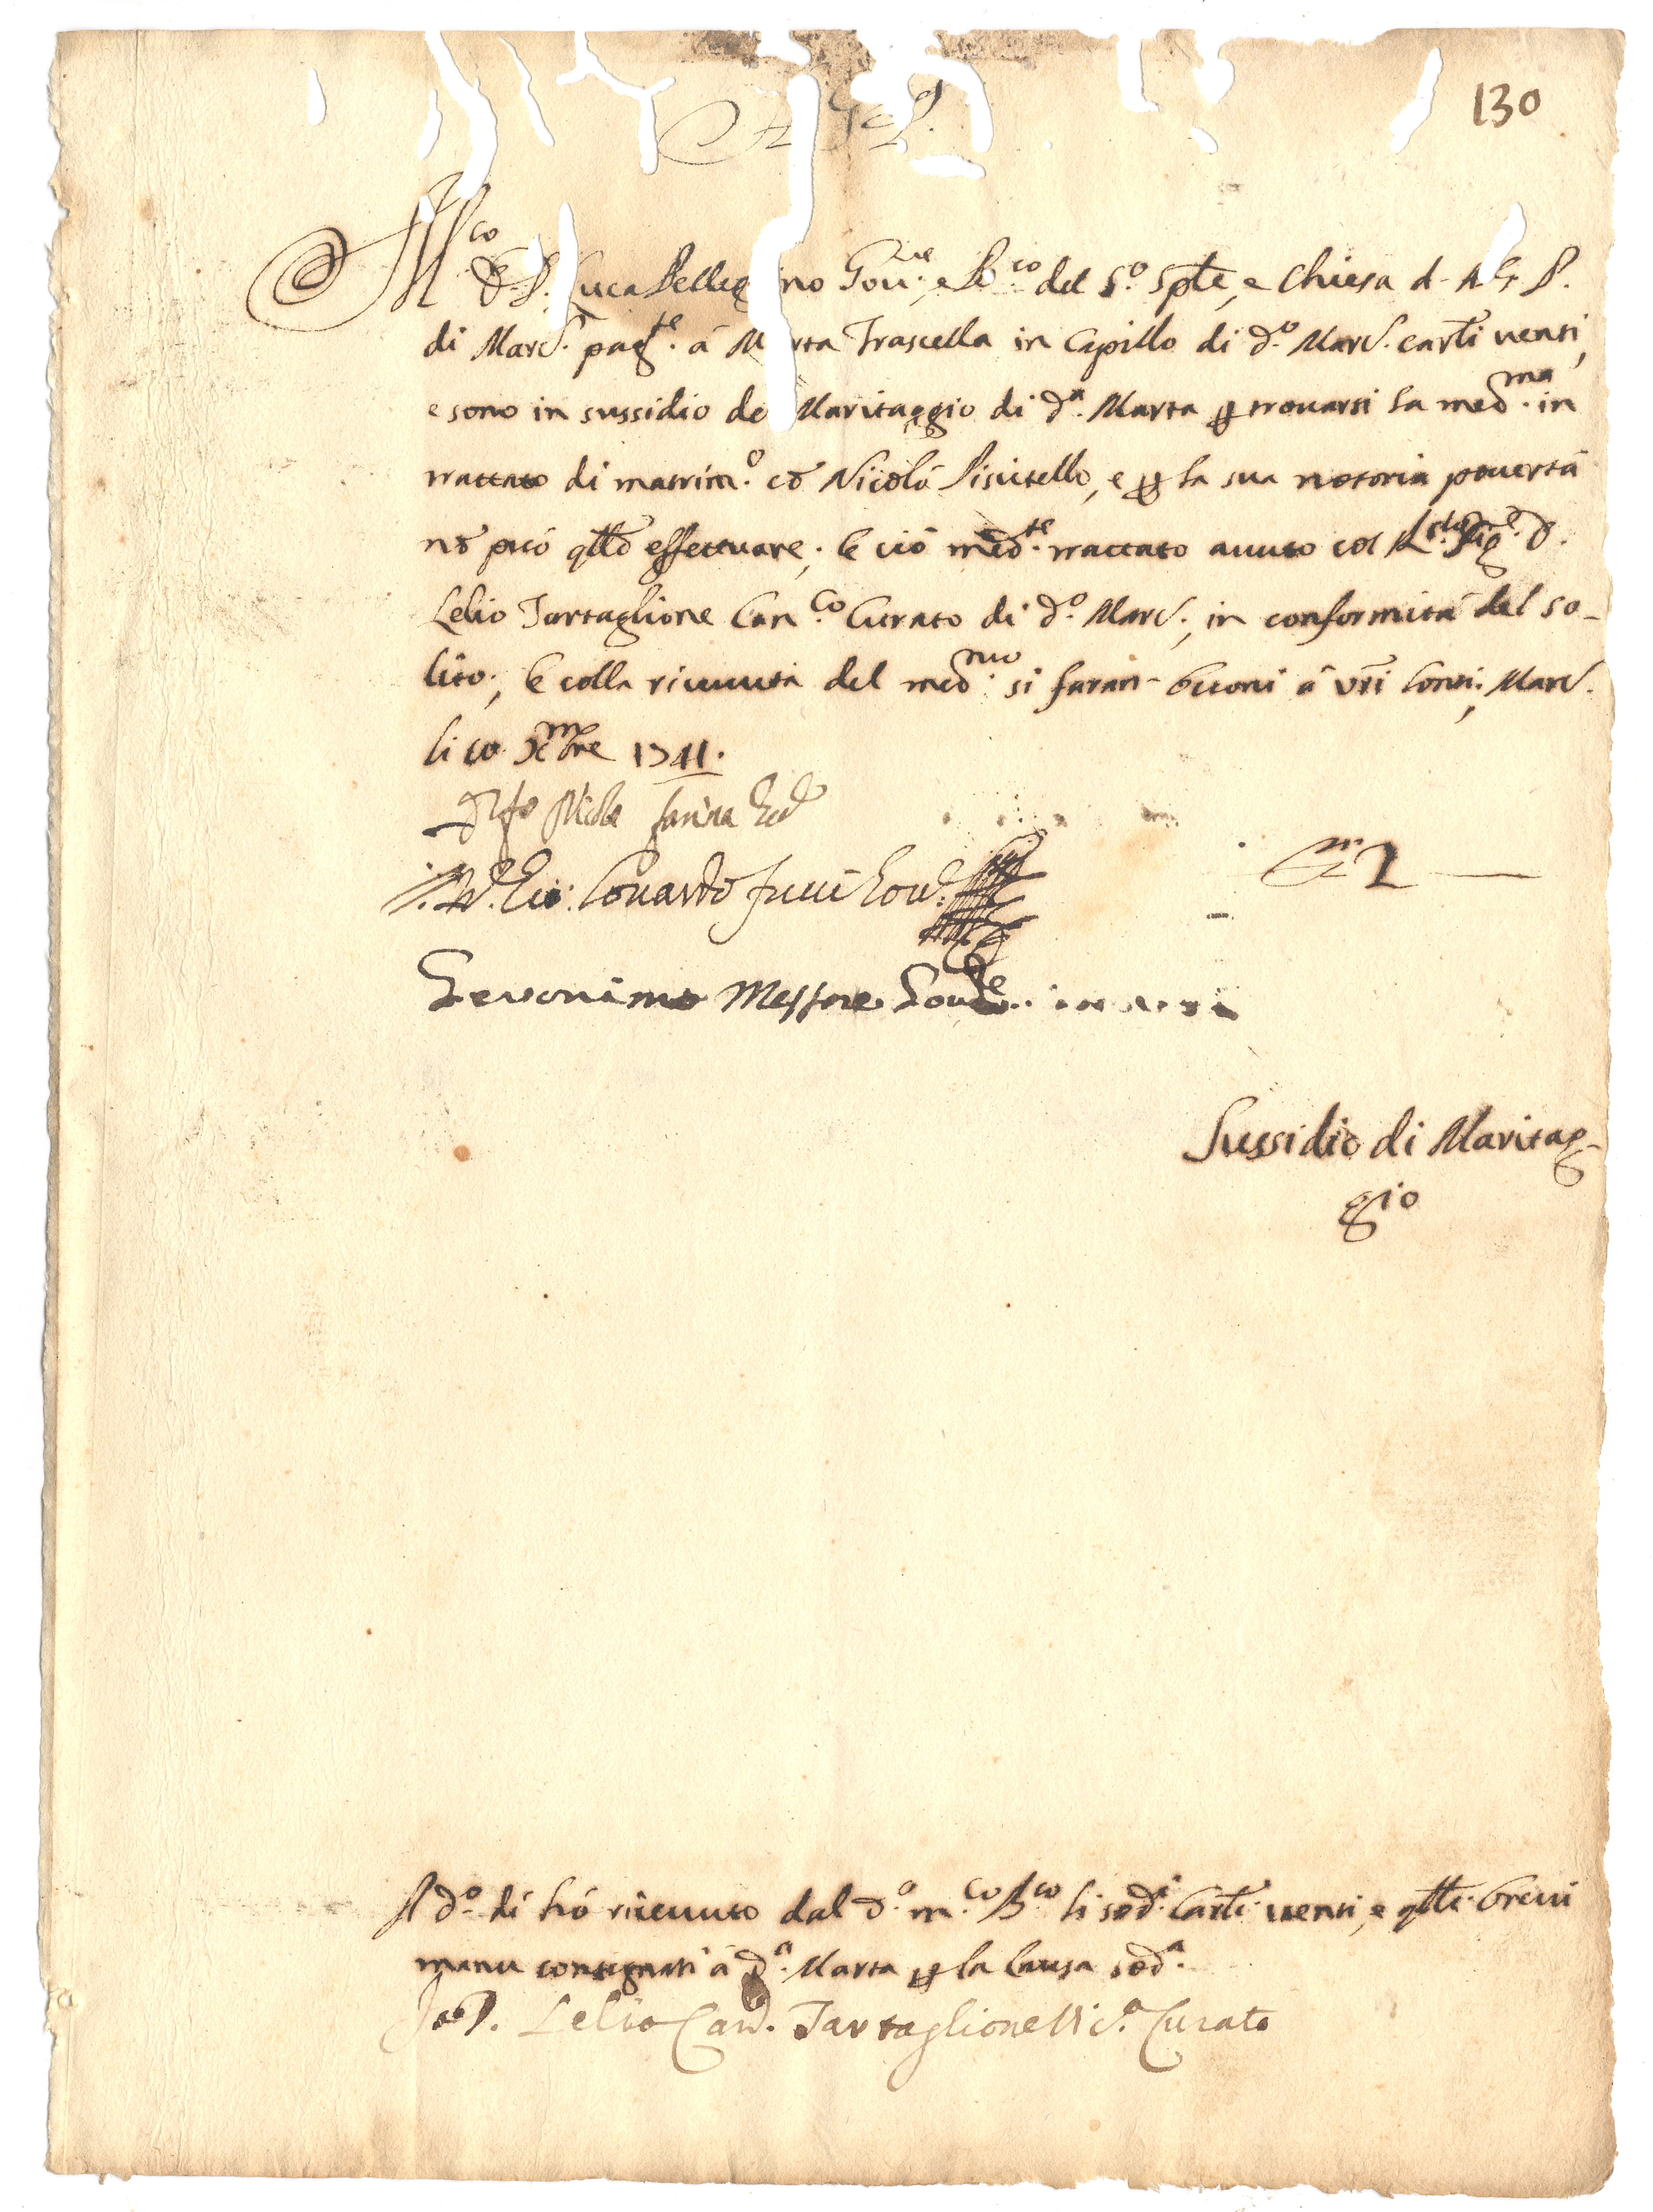 130
A. G. P.
M.co D. P. Luca Pelleg ino Gov.re, e B.co del S.o Sple, e Chiesa d. A. G. P.
di Marc. pag.te á M rta Trascella in Capillo di d.o Marc. carli venti,
e sono in sussidio de Maritaggio di d.a Marta p trovarsi la med.ma in
trattato di matrim.o cō Nicolá Pisitello, e p la sua notoria povertá
nō può qllo effettuare; E ció med.te trattato avuto col Sig.e D.
Lelio Tartaglione Can.co Curato di d.o Marc., in conformitá del so-
lito; E colla ricevuta del med.mo si faran- boni á vri Conti; Marc.
li 10 Xmbre 1741.
Nicola farina
Geronimo Messore Gov.re
2
Sussidio di Maritag-
gio
A d.o dí hó ricevuto dal d.o m.co B.co li sod.i Carli venti, e qlli brevi
manu consegnati á d.a Marta p la Causa sod.a
Io D. Lelio Can. Tartaglione Vic.o Curato